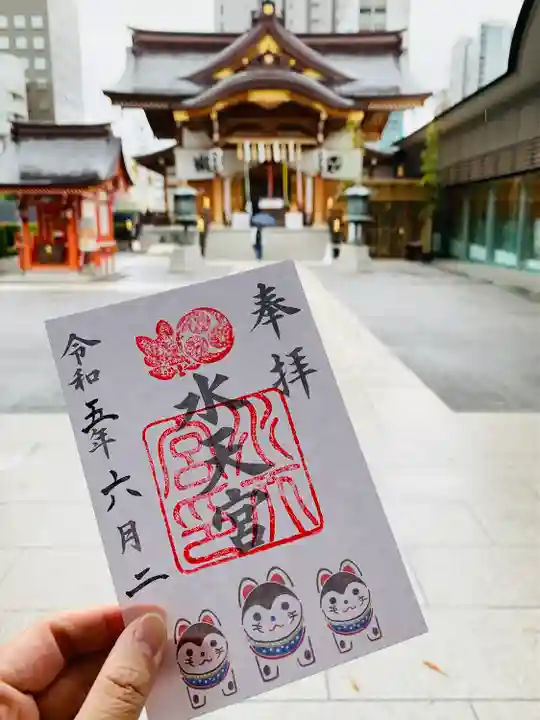 奉拝
水天宮
令和五年六月二